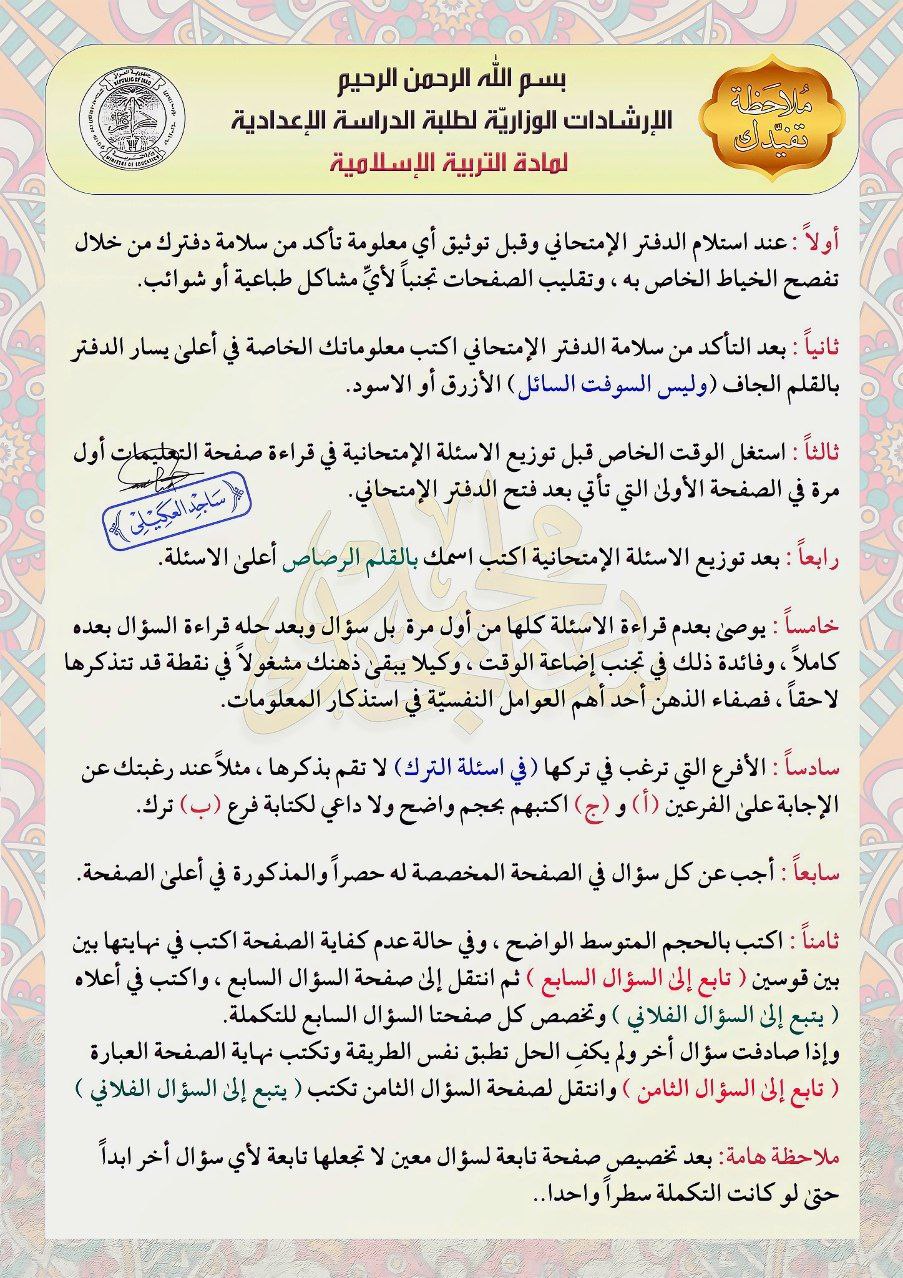 بسم الله الرحمن الرحيم
الإرشادات الوزاريّة لطلبة الدراسة الإعدادية
لمادة التربية الإسلامية
مُلاحَظة
تفيدك
أولاً : عند استلام الدفتر الإمتحاني وقبل توثيق أي معلومة تأكد من سلامة دفترك من خلال
تفصح الخياط الخاص به ، وتقليب الصفحات تجنباً لأيِّ مشاكل طباعية أو شوائب.
ثانياً : بعد التأكد من سلامة الدفتر الإمتحاني اكتب معلوماتك الخاصة في أعلىٰ يسار الدفتر
بالقلم الجاف (وليس السوفت السائل) الأزرق أو الاسود.
ثالثاً : استغل الوقت الخاص قبل توزيع الاسئلة الإمتحانية في قراءة صفحة التعليمات أول
مرة في الصفحة الأولىٰ التي تأتي بعد فتح الدفتر الإمتحاني.
ساجد العكيلي
رابعاً : بعد توزيع الاسئلة الإمتحانية اكتب اسمك بالقلم الرصاص أعلىٰ الاسئلة.
خامساً : يوصىٰ بعدم قراءة الاسئلة كلها من أول مرة بل سؤال وبعد حله قراءة السؤال بعده
كاملاً ، وفائدة ذلك في تجنب إضاعة الوقت ، وكيلا يبقىٰ ذهنك مشغولاً في نقطة قد تتذكرها
لاحقاً ، فصفاء الذهن أحد أهم العوامل النفسيّة في استذكار المعلومات.
سادساً : الأفرع التي ترغب في تركها (في اسئلة الترك) لا تقم بذكرها ، مثلاً عند رغبتك عن
الإجابة علىٰ الفرعين (أ) و (ج) اكتبهم بحجم واضح ولا داعي لكتابة فرع (ب) ترك.
سابعاً : أجب عن كل سؤال في الصفحة المخصصة له حصراً والمذكورة في أعلىٰ الصفحة.
ثامناً : اكتب بالحجم المتوسط الواضح ، وفي حالة عدم كفاية الصفحة اكتب في نهايتها بين
بين قوسين ( تابع إلىٰ السؤال السابع ) ثم انتقل إلىٰ صفحة السؤال السابع ، واكتب في أعلاه
( يتبع إلىٰ السؤال الفلاني ) وتخصص كل صفحتا السؤال السابع للتكملة.
وإذا صادفت سؤال أخر ولم يكفِ الحل تطبق نفس الطريقة وتكتب نهاية الصفحة العبارة
( تابع إلىٰ السؤال الثامن ) وانتقل لصفحة السؤال الثامن تكتب ( يتبع إلىٰ السؤال الفلاني )
ملاحظة هامة: بعد تخصيص صفحة تابعة لسؤال معين لا تجعلها تابعة لأي سؤال أخر ابداً
حتىٰ لو كانت التكملة سطراً واحدا..